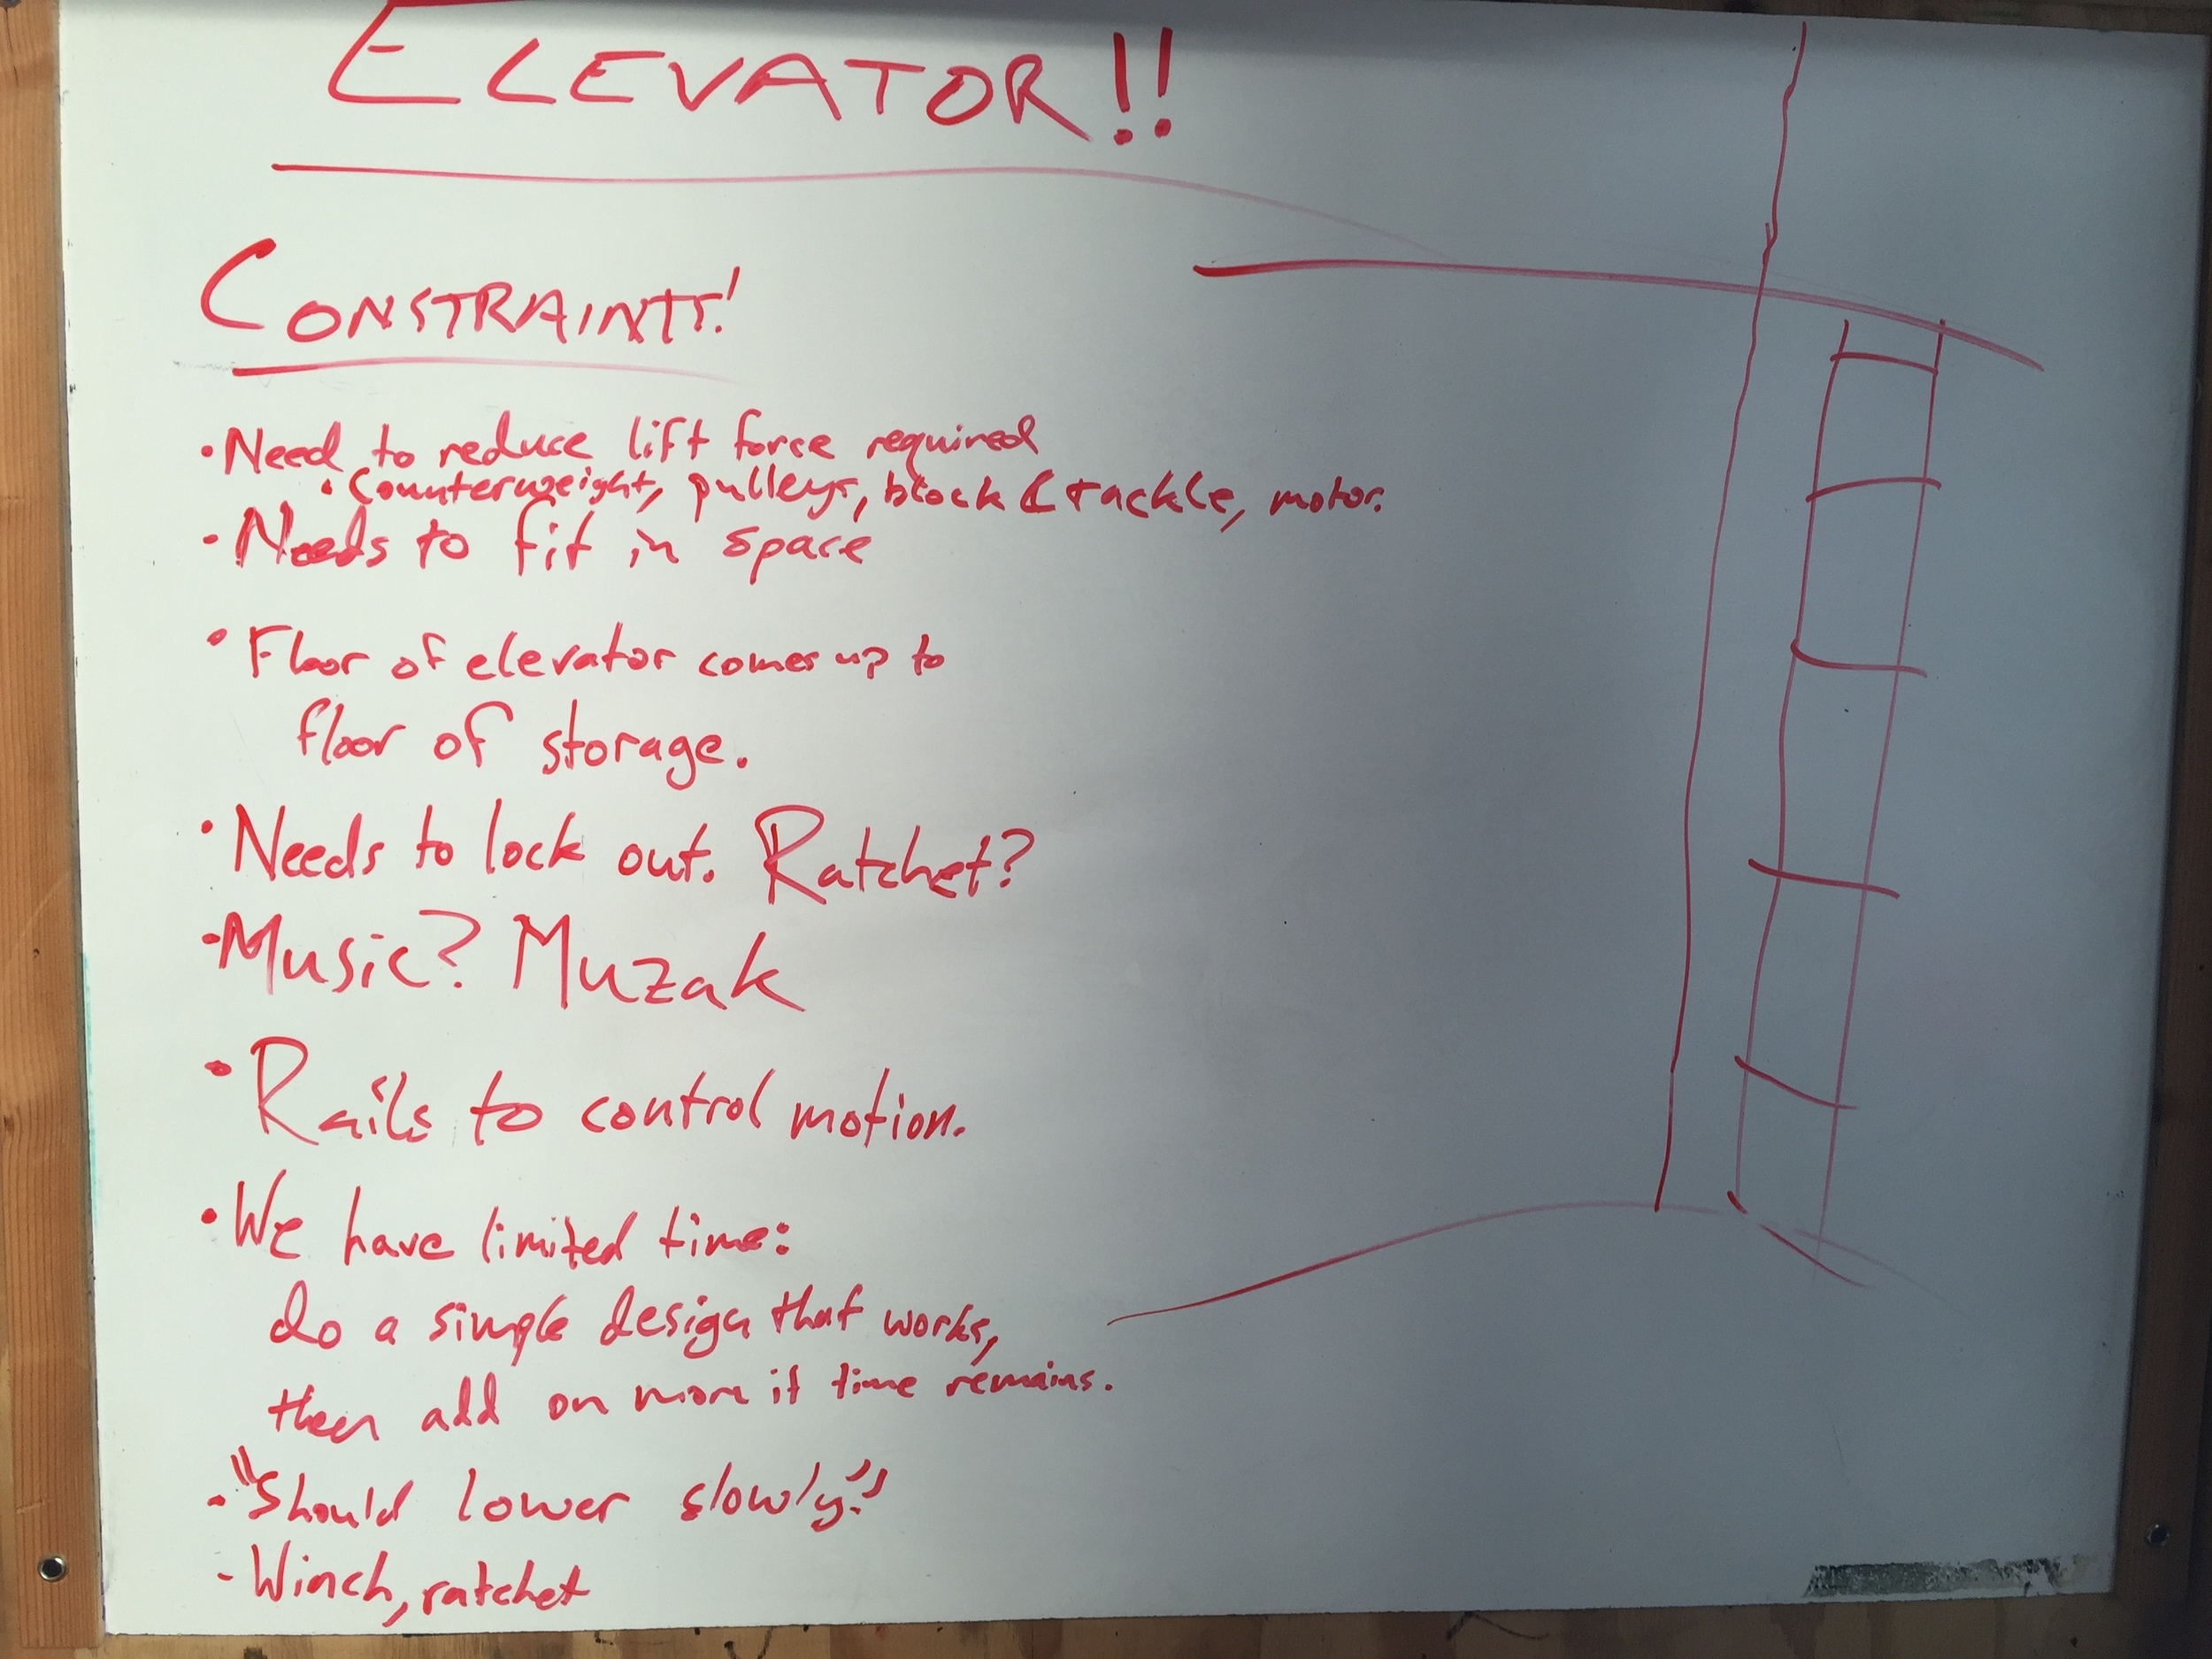 ELEVATOR!!
CONSTRAINTS!
• Need to reduce lift force required
• Counterweight, pulleys, block & tackle, motor.
• Needs to fit in space
• Floor of elevator comes up to
floor of storage.
• Needs to lock out. Ratchet?
• Music? Muzak
• Rails to control motion.
• We have limited time:
do a simple design that works,
then add on more if time remains.
- "Should lower slowly."
- Winch, ratchet